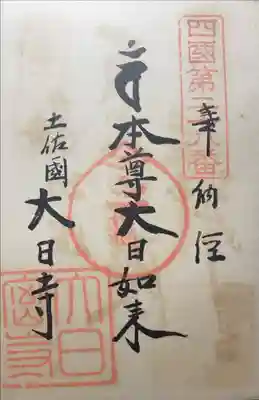 四國第二八番
奉納経
本尊大日如来
土佐國
大日寺